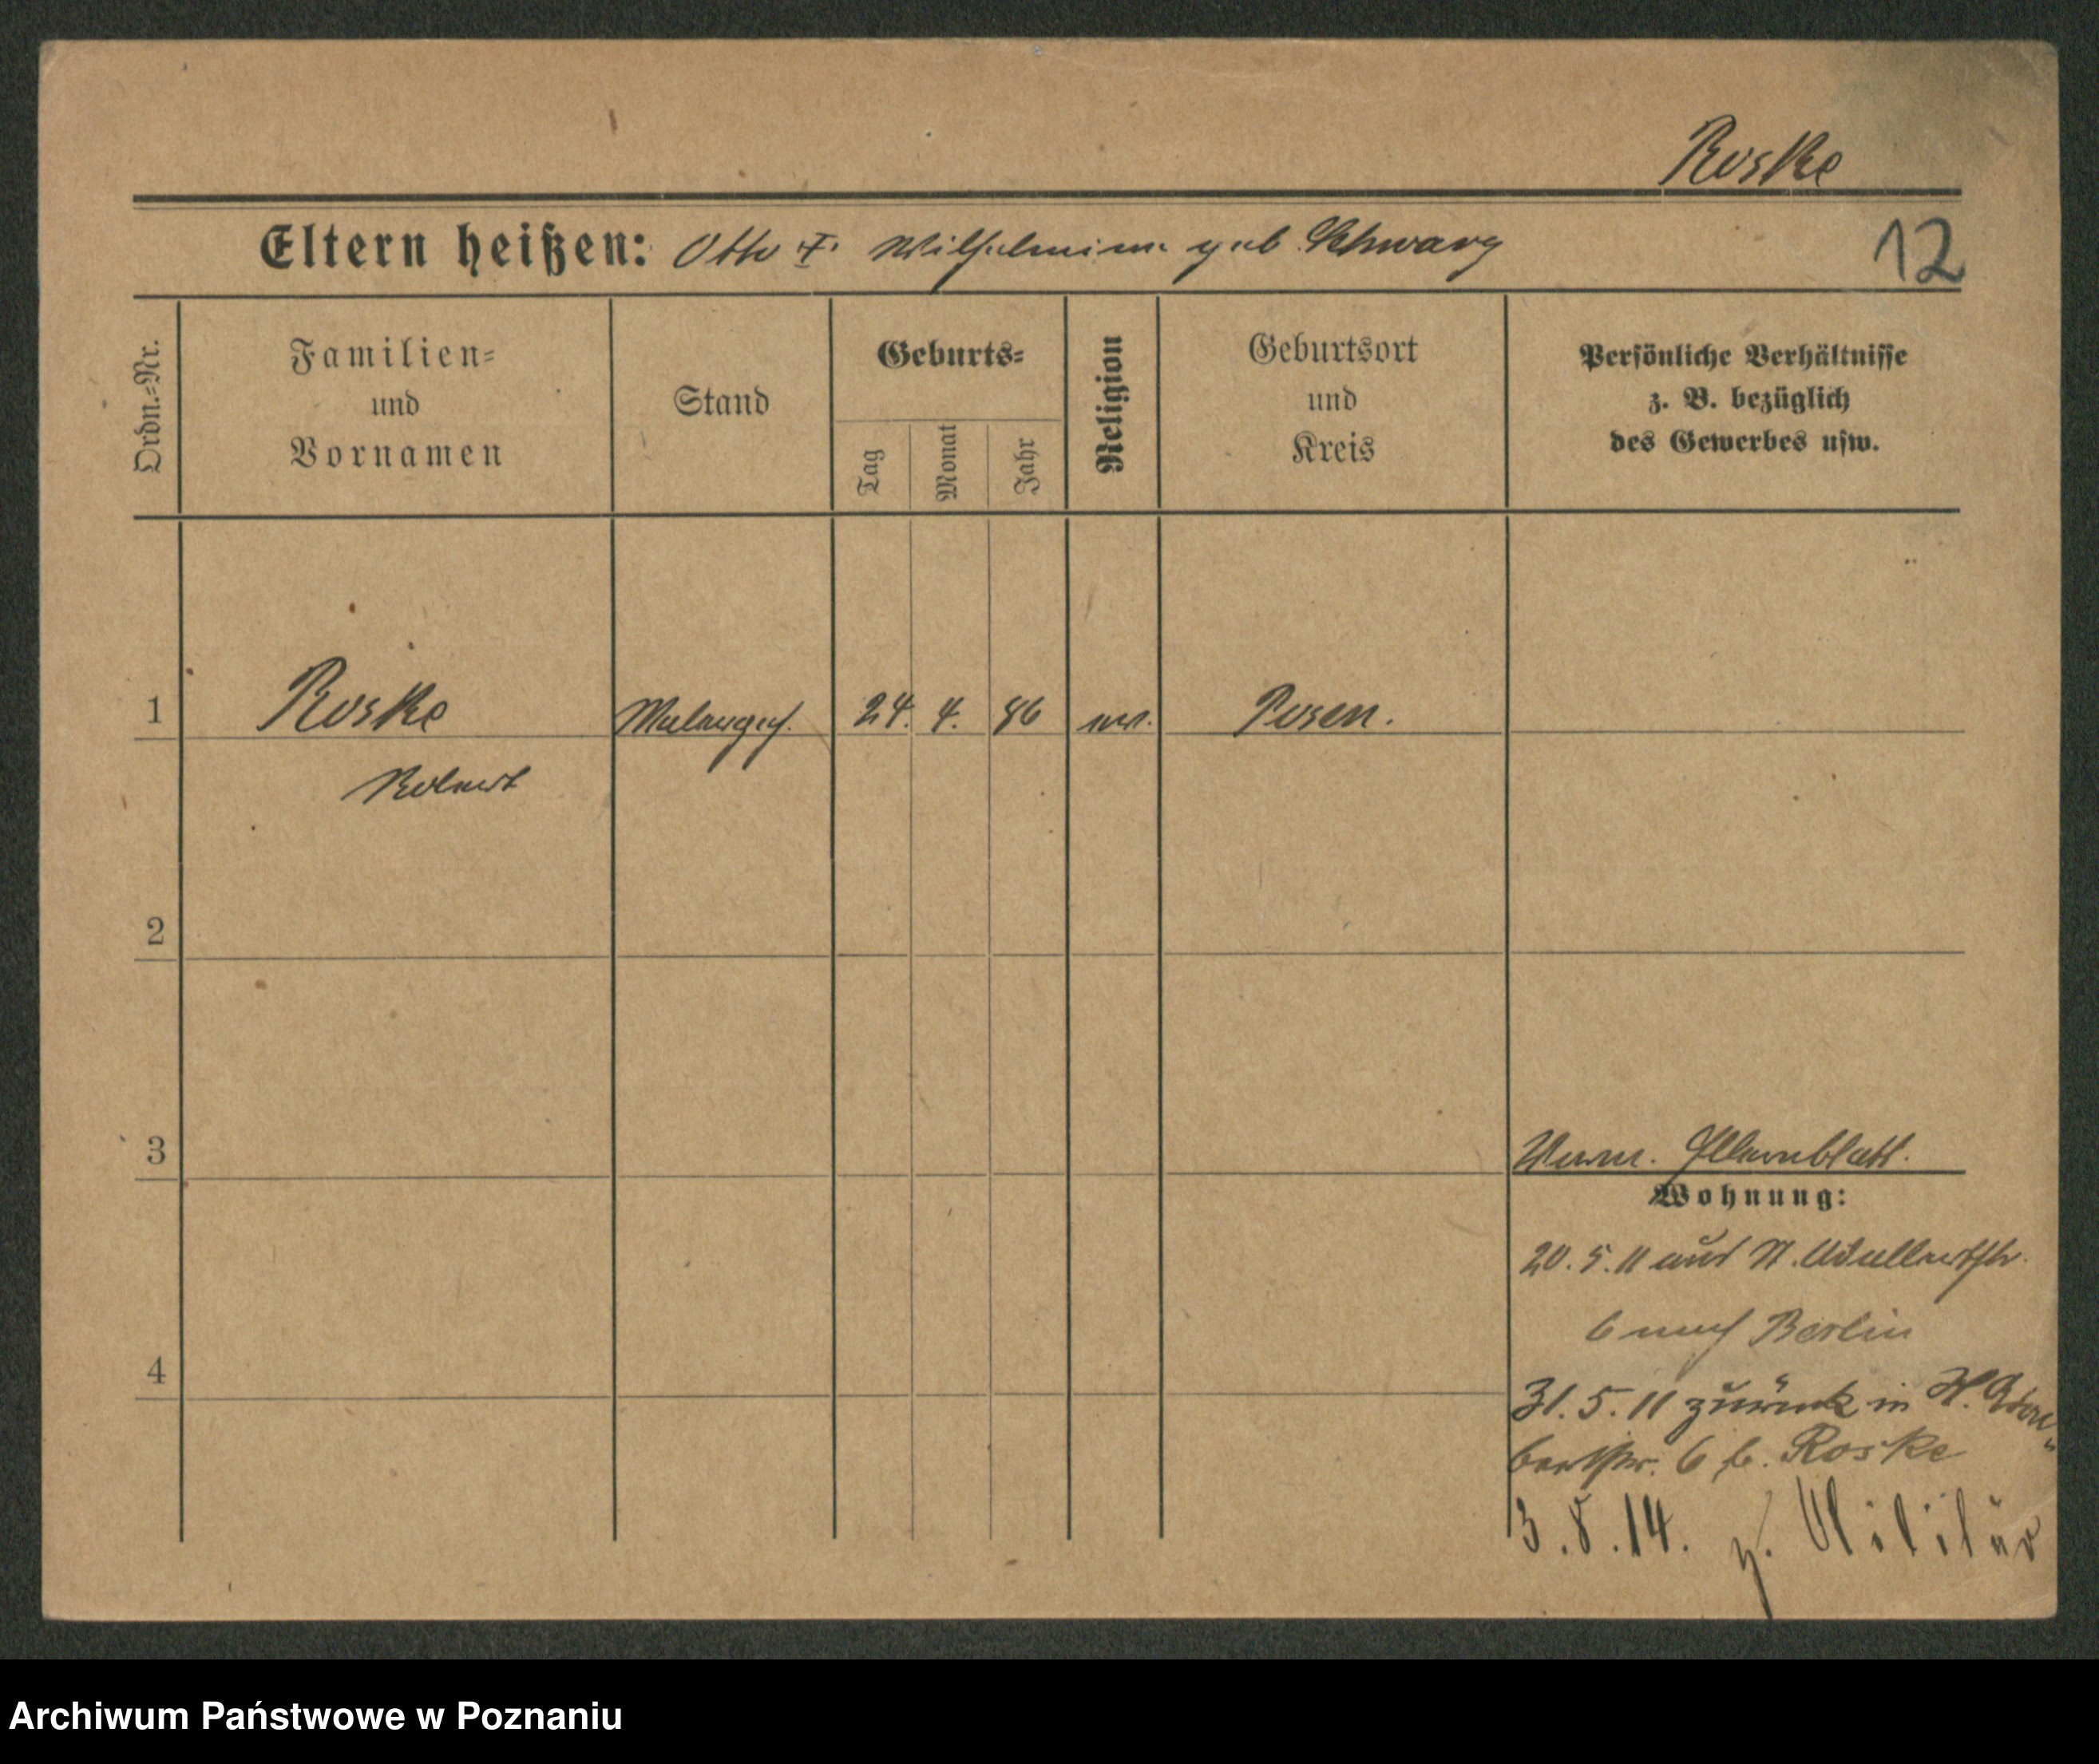 Roske
Eltern heißen: Otto †. Wilhelmine geb. Schwarz
12
Ordn.-Nr.
Familien-
und
Vornamen
Stand
Geburts-
Tag
Monat
Jahr
Religion
Geburtsort
und
Kreis
Persönliche Verhältnisse
z. B. bezüglich
des Gewerbes usw.
1 Roske Malergeh. 24. 4. 86 ev. Posen.
Robert
2
3 Elternblatt.
Wohnung:
20.5.11 aus St. Adalbertstr.
6 nach Berlin
4
31.5.11 zurück in St. Adal-
bertstr. 6 b. Roske
3.8.14. z. Militär
Archiwum Państwowe w Poznaniu